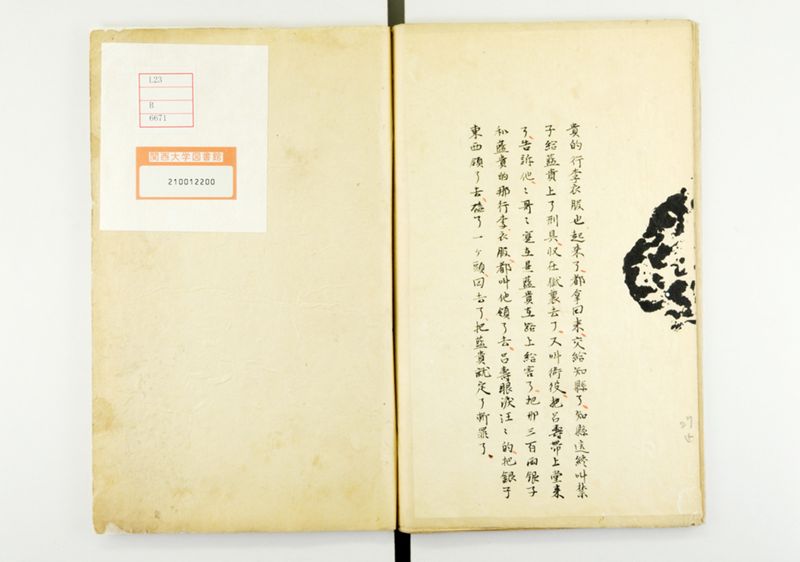 L23
B
6671
関西大学図書館
210012200
貴的行李衣服也起来了、都拿回来、交給知縣了、知縣這纔叫禁
子給藍貴上了刑具、収在獄裏去了、又叫衙役、把呂壽帶上堂来
了、告訴他、他哥々實在是藍貴在路上給害了、把那三百両銀子
和藍貴的那行李衣服、都叫他領了去、呂壽眼涙汪々的、把銀子
東西領了去、磕了一个頭、回去了、把藍貴就定了斬罪了、